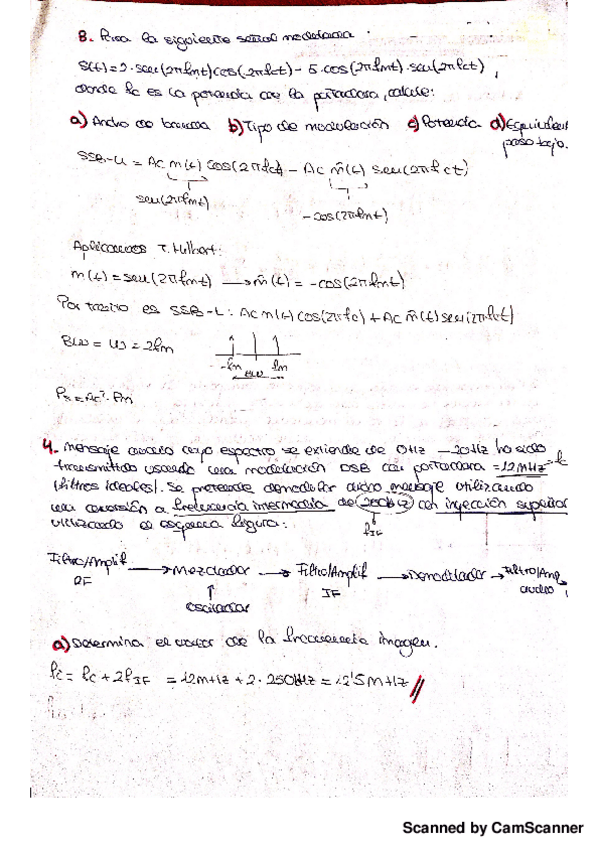 8. Para la siguiente señal modelada:
S(t)=2·sen(2πfmt)cos(2πfct) - 5·cos(2πfmt)·sen(2πfct),
donde fc es la portadora, calcule:
a) Ancho de banda b) Tipo de modulación c) Potencia d) Equivalent
paso bajo.
SSB-U = Ac m(t) cos(2πfct) - Ac m̂(t) sen(2πfct)
sen(2πfmt)
-cos(2πfmt)
Aplicamos T. Hilbert:
m(t) = sen(2πfmt) → m̂(t) = -cos(2πfmt)
Por tanto es SSB-L: Ac m(t) cos(2πfc) + Ac m̂(t) sen(2πfct)
BW = W = 2fm
-fm fm
BW
Ps = Ac²·Pm
4. mensaje cuyo espectro se extiende de 0Hz - 20Hz ha sido
transmitido usando una modulación DSB con portadora = 12MHz
(filtros ideales). Se pretende demodular dicho mensaje utilizando
una conversión a frecuencia intermedia de 250kHz con inyección superior
utilizando el esquema figura:
fIF
Filtro/Amplif → Mezclador → Filtro/Amplif → Demodulador → Filtro/Amp
RF IF audio
oscilador
a) Determina el valor de la frecuencia imagen.
fc + 2fIF = 12MHz + 2·250kHz = 12'5MHz //
Scanned by CamScanner